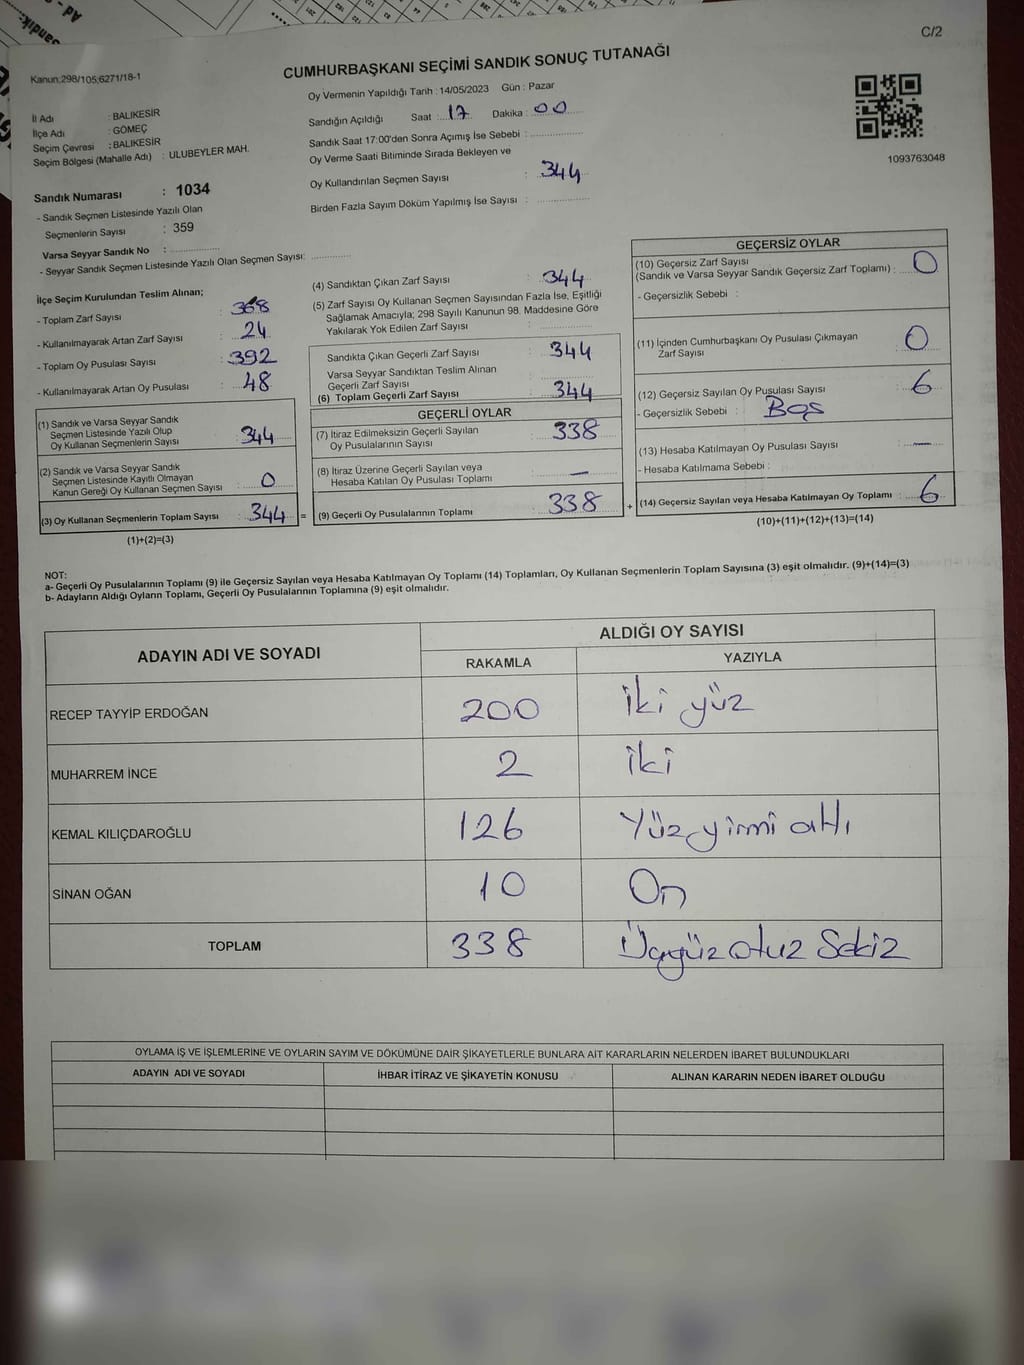 C/2
Kanun:298/105;6271/18-1
CUMHURBAŞKANI SEÇİMİ SANDIK SONUÇ TUTANAĞI
Oy Vermenin Yapıldığı Tarih : 14/05/2023 Gün : Pazar
İl Adı : BALIKESİR
İlçe Adı : GÖMEÇ
Seçim Çevresi : BALIKESİR
Seçim Bölgesi (Mahalle Adı) : ULUBEYLER MAH.
Sandığın Açıldığı Saat : 17 Dakika : 00
Sandık Saat 17:00'den Sonra Açımış İse Sebebi :
Oy Verme Saati Bitiminde Sırada Bekleyen ve
Oy Kullandırılan Seçmen Sayısı : 344
Birden Fazla Sayım Döküm Yapılmış İse Sayısı :
1093763048
Sandık Numarası : 1034
- Sandık Seçmen Listesinde Yazılı Olan
Seçmenlerin Sayısı : 359
Varsa Seyyar Sandık No :
- Seyyar Sandık Seçmen Listesinde Yazılı Olan Seçmen Sayısı:
İlçe Seçim Kurulundan Teslim Alınan;
- Toplam Zarf Sayısı : 368
- Kullanılmayarak Artan Zarf Sayısı : 24
- Toplam Oy Pusulası Sayısı : 392
- Kullanılmayarak Artan Oy Pusulası : 48
(1) Sandık ve Varsa Seyyar Sandık
Seçmen Listesinde Yazılı Olup
Oy Kullanan Seçmenlerin Sayısı : 344
(2) Sandık ve Varsa Seyyar Sandık
Seçmen Listesinde Kayıtlı Olmayan
Kanun Gereği Oy Kullanan Seçmen Sayısı : 0
(3) Oy Kullanan Seçmenlerin Toplam Sayısı : 344 =
(1)+(2)=(3)
(4) Sandıktan Çıkan Zarf Sayısı : 344
(5) Zarf Sayısı Oy Kullanan Seçmen Sayısından Fazla İse, Eşitliği
Sağlamak Amacıyla; 298 Sayılı Kanunun 98. Maddesine Göre
Yakılarak Yok Edilen Zarf Sayısı :
Sandıkta Çıkan Geçerli Zarf Sayısı : 344
Varsa Seyyar Sandıktan Teslim Alınan
Geçerli Zarf Sayısı :
(6) Toplam Geçerli Zarf Sayısı : 344
GEÇERLİ OYLAR
(7) İtiraz Edilmeksizin Geçerli Sayılan
Oy Pusulalarının Sayısı : 338
(8) İtiraz Üzerine Geçerli Sayılan veya
Hesaba Katılan Oy Pusulası Toplamı : —
(9) Geçerli Oy Pusulalarının Toplamı : 338 +
GEÇERSİZ OYLAR
(10) Geçersiz Zarf Sayısı
(Sandık ve Varsa Seyyar Sandık Geçersiz Zarf Toplamı) : 0
- Geçersizlik Sebebi :
(11) İçinden Cumhurbaşkanı Oy Pusulası Çıkmayan
Zarf Sayısı : 0
(12) Geçersiz Sayılan Oy Pusulası Sayısı : 6
- Geçersizlik Sebebi : Boş
(13) Hesaba Katılmayan Oy Pusulası Sayısı : —
- Hesaba Katılmama Sebebi :
(14) Geçersiz Sayılan veya Hesaba Katılmayan Oy Toplamı : 6
(10)+(11)+(12)+(13)=(14)
NOT:
a- Geçerli Oy Pusulalarının Toplamı (9) ile Geçersiz Sayılan veya Hesaba Katılmayan Oy Toplamı (14) Toplamları, Oy Kullanan Seçmenlerin Toplam Sayısına (3) eşit olmalıdır. (9)+(14)=(3)
b- Adayların Aldığı Oyların Toplamı, Geçerli Oy Pusulalarının Toplamına (9) eşit olmalıdır.
ADAYIN ADI VE SOYADI ALDIĞI OY SAYISI
RAKAMLA YAZIYLA
RECEP TAYYİP ERDOĞAN 200 İki yüz
MUHARREM İNCE 2 İki
KEMAL KILIÇDAROĞLU 126 Yüzyirmi altı
SİNAN OĞAN 10 On
TOPLAM 338 Üçyüz otuz Sekiz
OYLAMA İŞ VE İŞLEMLERİNE VE OYLARIN SAYIM VE DÖKÜMÜNE DAİR ŞİKAYETLERLE BUNLARA AİT KARARLARIN NELERDEN İBARET BULUNDUKLARI
ADAYIN ADI VE SOYADI İHBAR İTİRAZ VE ŞİKAYETİN KONUSU ALINAN KARARIN NEDEN İBARET OLDUĞU